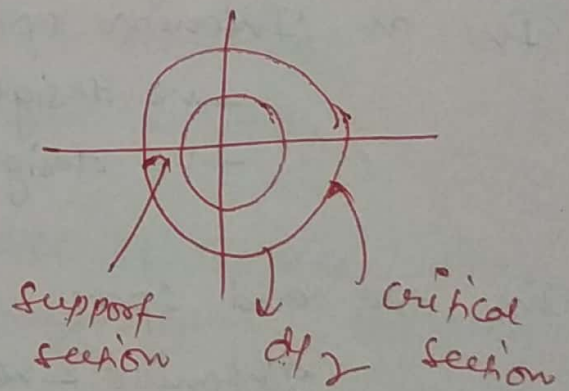 support
section
d/2
critical
section